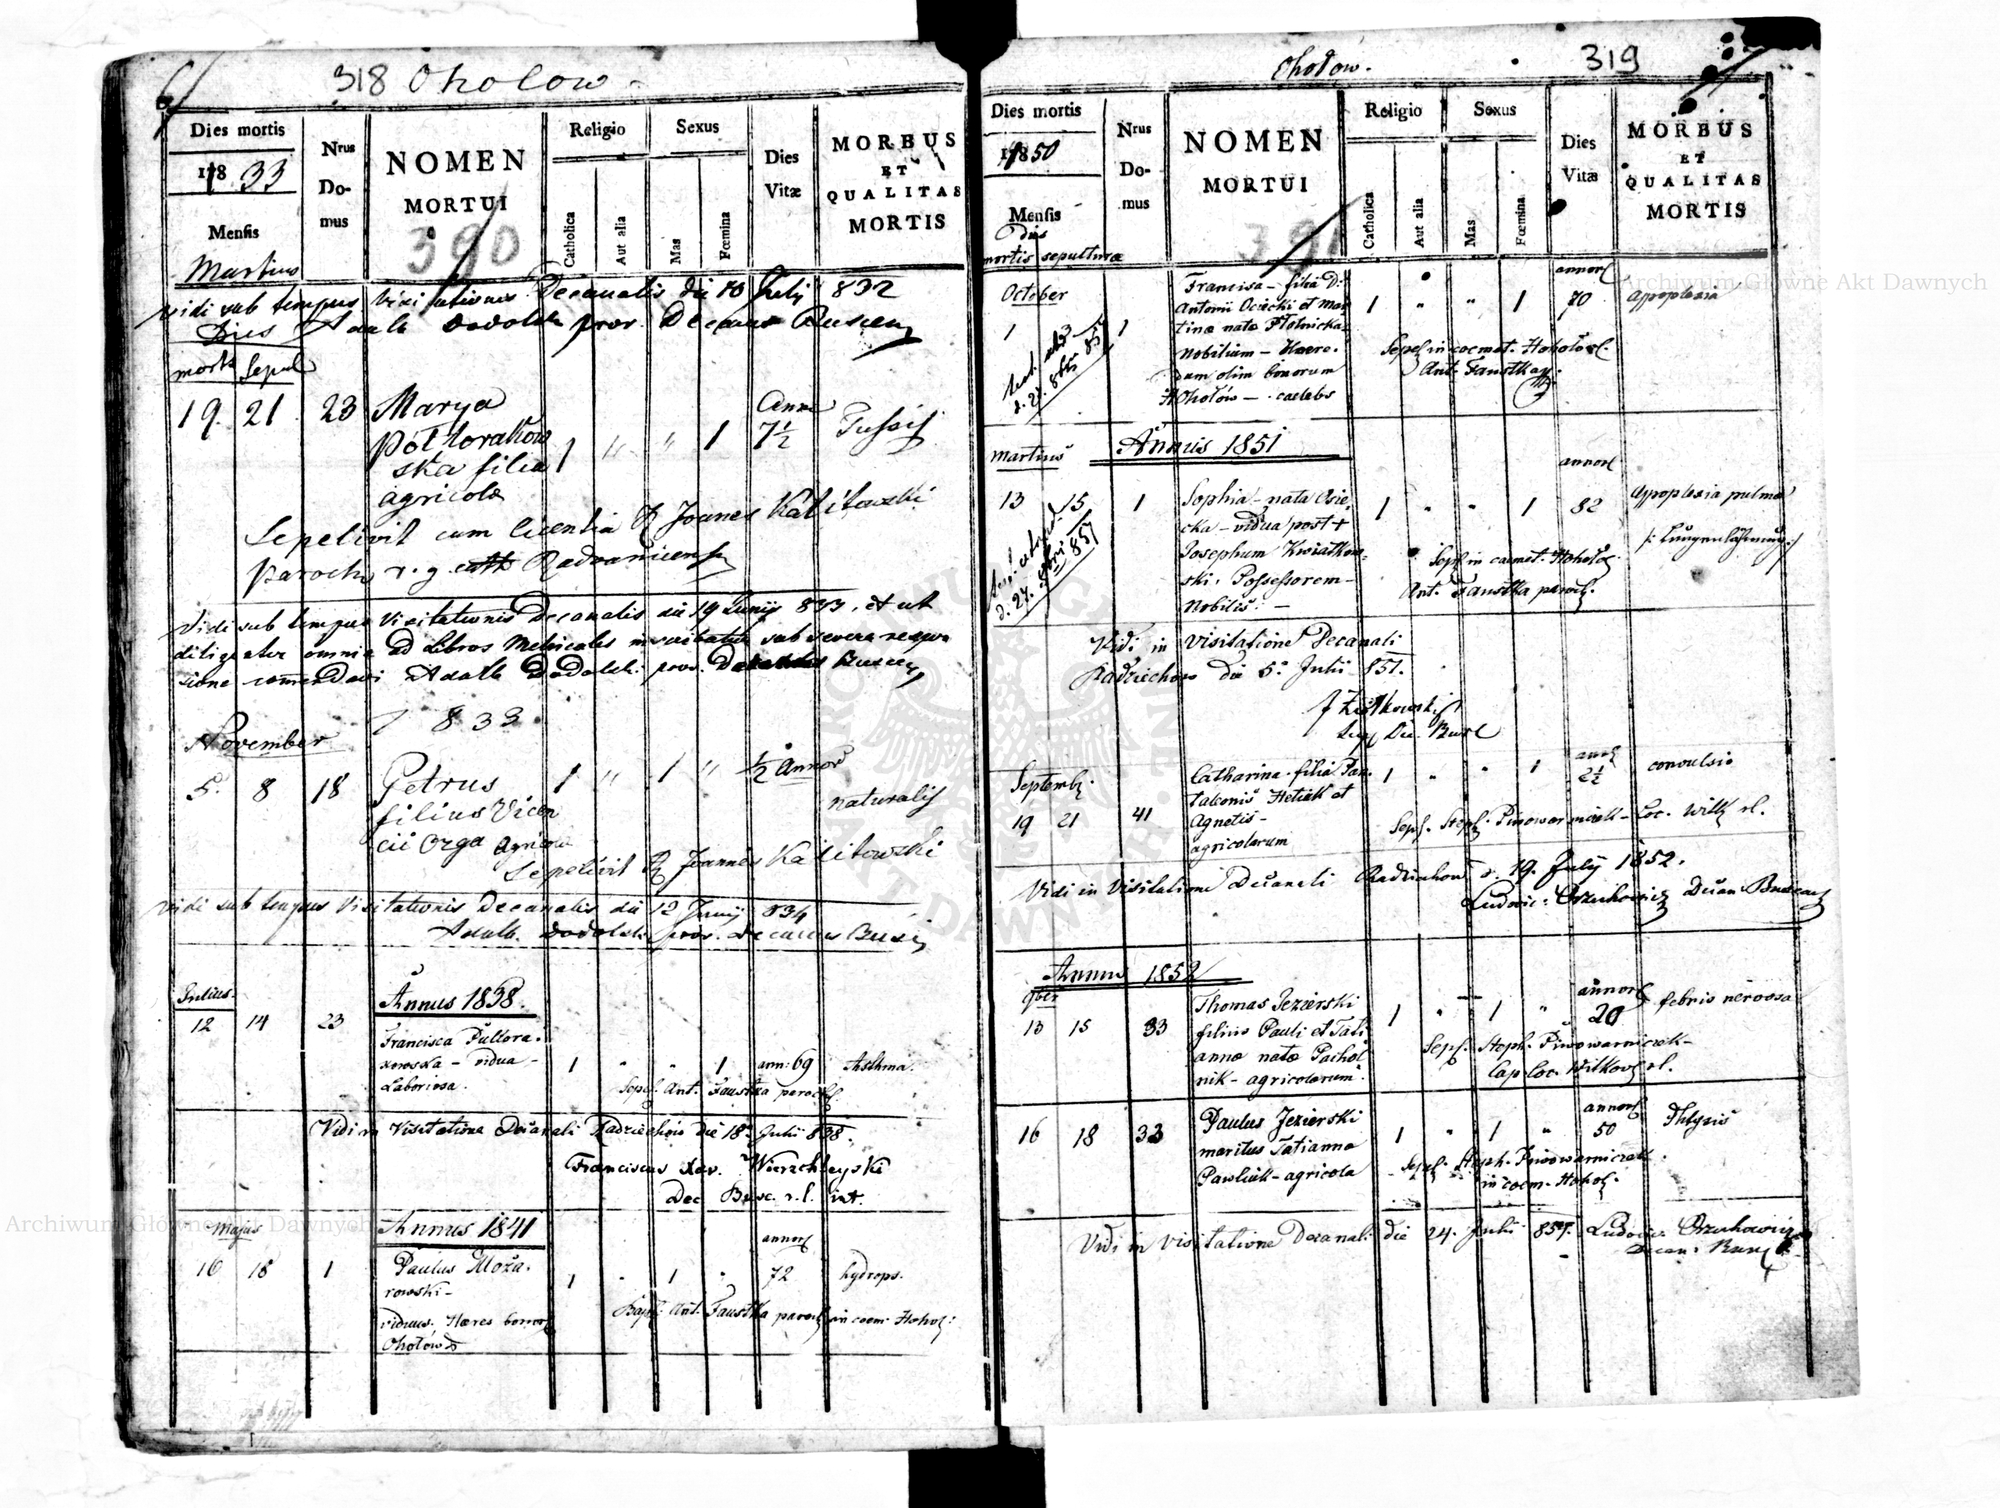 318 Oholow
Dies mortis
1833
Mensis
Martius
Nrus
Do-
mus
NOMEN
MORTUI
390
Religio
Catholica
Aut alia
Sexus
Mas
Fœmina
Dies
Vitæ
MORBUS
ET
QUALITAS
MORTIS
Vidi sub tempus Visitationis Decanalis die 10 July 832
Adalb Dodolski prov. Decanus Buscen
Dies
mortis Sepul
19. 21 23 Marya
Półtorakow
ska filia
agricolæ
1 " " 1
Anni
7½
Tussis
Sepelivit cum licentia R Joannes Kalitowski
Parochus r. g. cath Radvanicensis
Vidi sub tempus Visitationis Decanalis die 19 Junij 833, et ut
diligenter omnia ad Libros Metricales inscribatur sub severa respon
sione comendavi Adalb Dodolski prov. Decanus Buscen
November 1833
5. 8 18 Petrus
filius Vicen
cii Orga Agricolæ
1 " 1 " ½ Annor
naturalis
Sepelivit R Joannes Kalitowski
Vidi sub tempus Visitationis Decanalis die 12 Junij 834
Adalb. Dodolski prov. Decanus Busc
Julius
Annus 1838.
12 14 23
Francisca Pultora-
kowska - vidua -
Laboriosa.
1 " " 1 ann: 69 Asthma.
Sepel. Ant. Faustka paroch.
Vidi in Visitatione Decanali Radziechów die 18. Julii 838.
Franciscus Xav. Wierzchleyski
Dec Busc. r. l. int.
Majus
Annus 1841
16 18 1
Paulus Moża-
rowski -
viduus. Hæres bonor
Ohołów
1 " 1 "
annor
72
hydrops.
Sepel. Ant. Faustka paroch in coem. Hohoł:
Ohołow.
319
Dies mortis
1850
Mensis
Dies
mortis sepulturæ
Nrus
Do-
mus
NOMEN
MORTUI
391
Religio
Catholica
Aut alia
Sexus
Mas
Fœmina
Dies
Vitæ
MORBUS
ET
QUALITAS
MORTIS
October
1 3 1
d. 27. 8bris 85
Francisca - filia D.
Antonii Ociecki et Mar
tinæ natæ Płotnicka
Nobilium - Hære-
dum olim bonorum
Hohołów - caelebs
1 " " 1
annor
70
Apoplexia
Sepel in coemet. Hohołow.
Ant. Faustka
Annus 1851
Martius
13 15 1
d. 27. 8bri 851
Sophia - nata Osie-
cka - vidua post +
Josephum Kwiatkow-
ski. Possessorem -
Nobilis. -
1 " " 1
annor
82
Apoplexia pulmo
/: Lungenlähmung:/
Sepel in coemet. Hohoło
Ant. Faustka paroch.
Vidi in Visitatione Decanali
Radziechow die 5. Julii 851.
Septemb.
19 21 41
Catharina filia Pan-
taleonis Hetick et
Agnetis -
agricolarum
1 " " 1
annor
2½
convulsio
Sepel. Steph. Piwowarniczek - Loc. Witk rl.
Vidi in Visitatione Decanali Radziechow d. 19. July 1852.
Ludovic. Orzechowicz Decan Buscen
Annus 1852
9ber
13 15 33
Thomas Jezierski
filius Pauli et Tati-
annæ natæ Pachol
nik - agricolarum.
1 " 1 "
annor
20
febris nervosa
Sepel. Steph. Piwowarniczek -
Cap loc. Witkow rl.
16 18 33
Paulus Jezierski
maritus Tatianna
Pawluk - agricola
1 " 1 "
annor
50
Phtysis
Sepel. Steph. Piwowarniczek
in coem. Hohoł.
Vidi in visitatione Decanali die 24. Julii 857. Ludovic. Orzechowicz
Decan. Busc
Archiwum Główne Akt Dawnych
Archiwum Główne Akt Dawnych
ARCHIWUM GŁÓWNE
AKT DAWNYCH